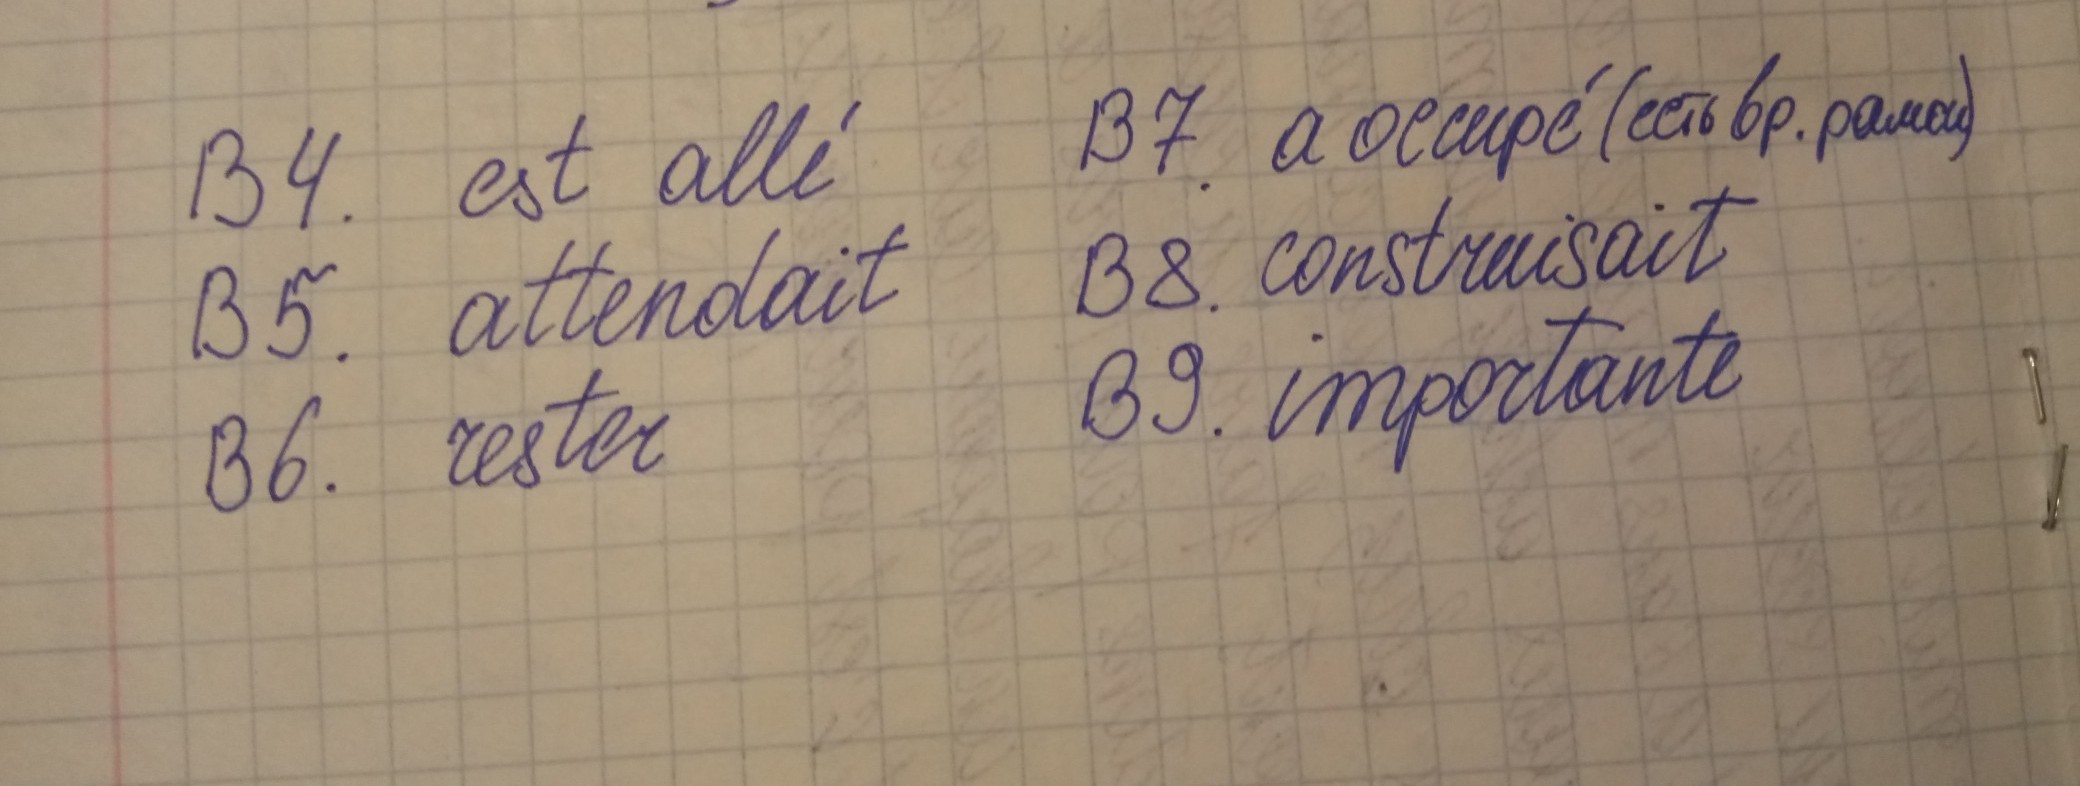 B4. est allé
B5. attendait
B6. rester
B7. a occupé (есть вр. рамки)
B8. construisait
B9. importante